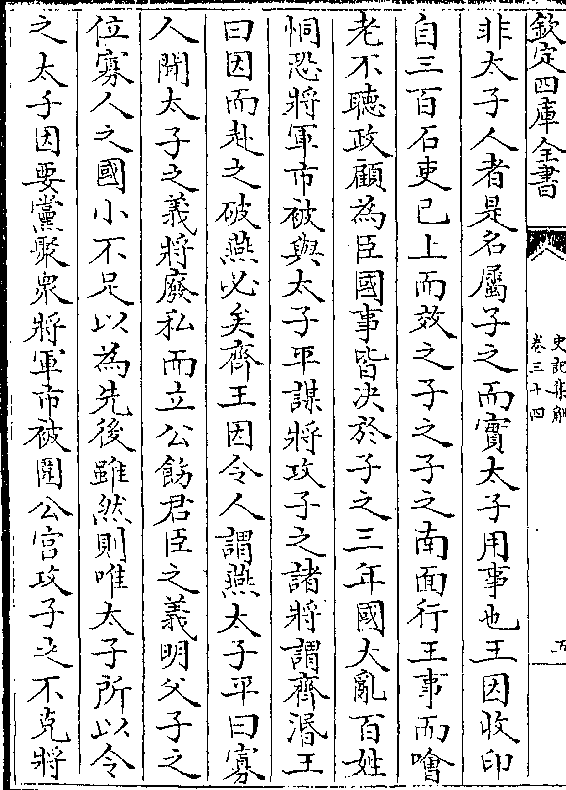 欽定四庫全書
史記集解
卷三十四
五
非太子人者是名屬子之而實太子用事也王因收印
自三百石吏已上而效之子之子之南面行王事而噲
老不聽政顧為臣國事皆决於子之三年國大亂百姓
恫恐將軍市被與太子平謀將攻子之諸將謂齊湣王
曰因而赴之破燕必矣齊王因令人謂燕太子平曰寡
人聞太子之義將廢私而立公飭君臣之義明父子之
位寡人之國小不足以為先後雖然則唯太子所以令
之太子因要黨聚衆將軍市被圍公宫攻子之不克將